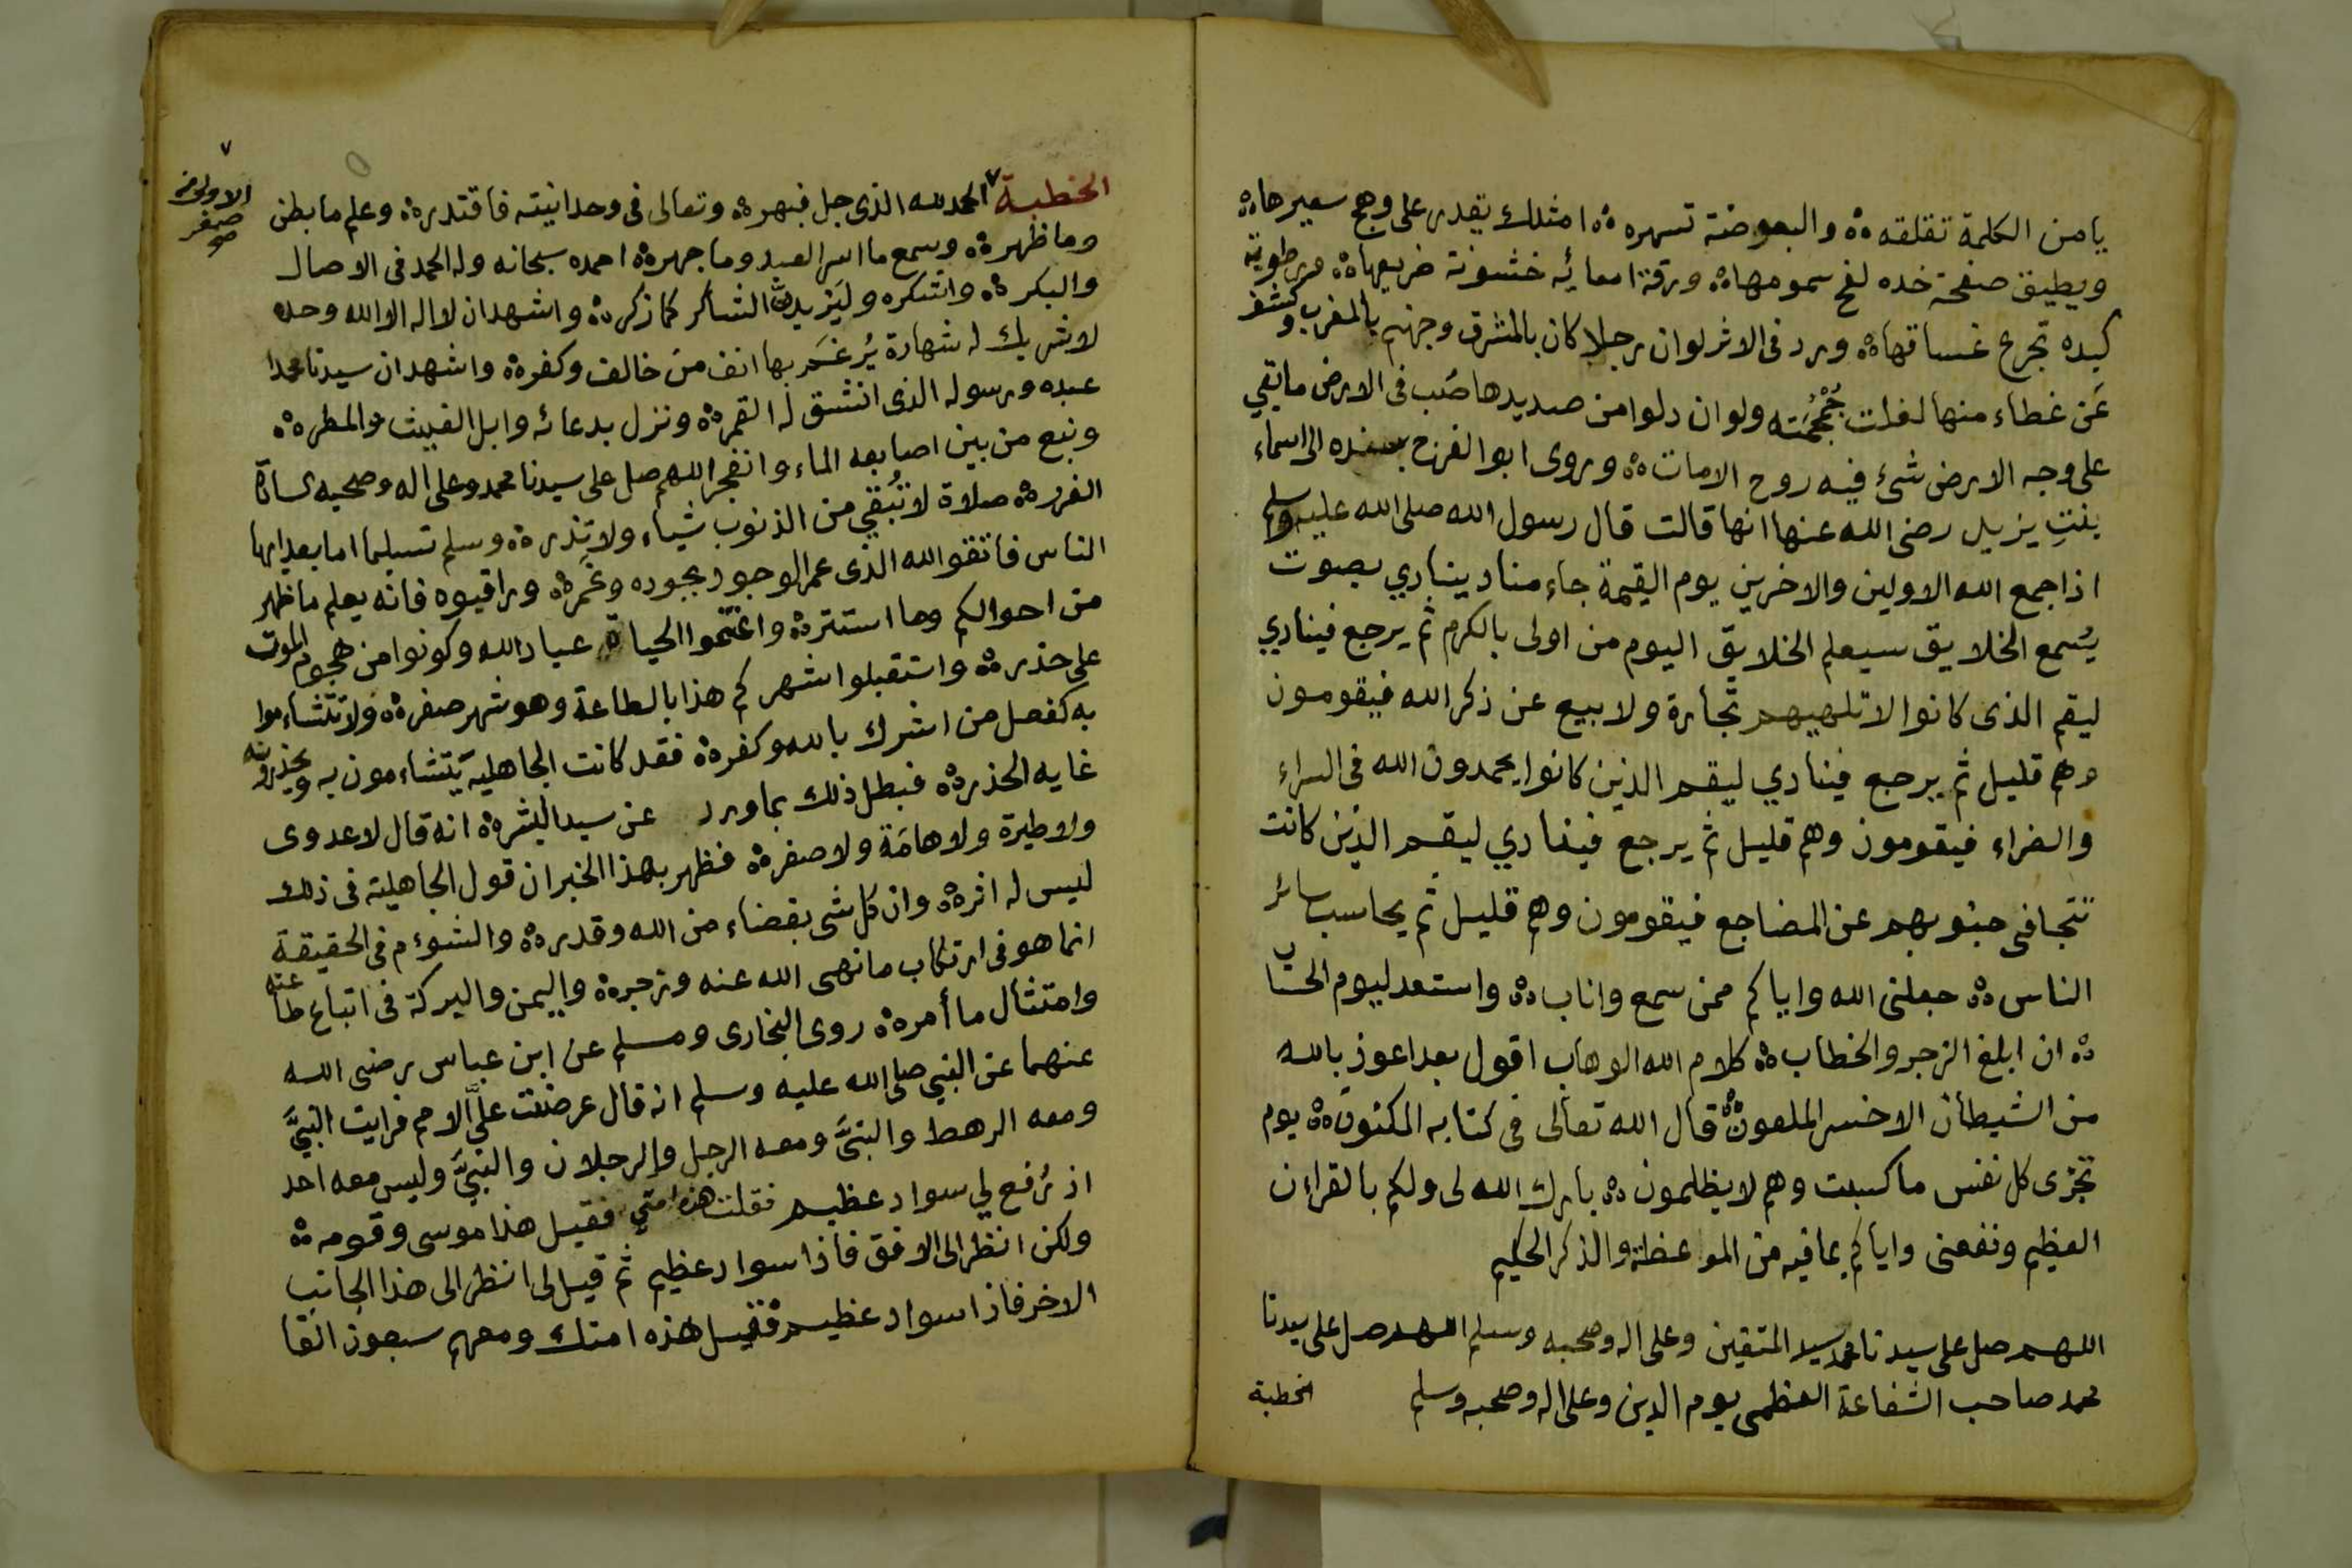 يا من الكلمة تقلقه ٥ والبعوضة تسهره ٥ امثلك يقدر على وهج سعيرها ٥
ويطيق صفحة خده لفح سمومها ٥ ورقة امعائه خشونة ضريعها ٥ ورطوبة
كبده تجرع غساقها ٥ وورد فى الاثر لو ان رجلا كان بالمشرق وجهنم بالمغرب وكشف
عن غطاء منها لغلت جُمْجُمَته ولو ان دلوا من صديدها صُب فى الارض ما بقي
على وجه الارض شئ فيه روح الا مات ٥ وروى ابو الفرج بسنده الى اسماء
بنتِ يزيد رضى الله عنها انها قالت قال رسول الله صلى الله عليه وسلم
اذا جمع الله الاولين والاخرين يوم القيمة جاء مناد ينادي بصوت
يُسمع الخلايق سيعلم الخلايق اليوم من اولى بالكرم ثم يرجع فينادي
ليقم الذى كانوا لا تلهيهم تجارة ولا بيع عن ذكر الله فيقومون
وهم قليل ثم يرجع فينادي ليقم الذين كانوا يحمدون الله فى السراء
والضراء فيقومون وهم قليل ثم يرجع فينادي ليقم الذين كانت
تتجافى جنوبهم عن المضاجع فيقومون وهم قليل ثم يحاسب سائر
الناس ٥ جعلنى الله واياكم ممن سمع واناب ٥ واستعد ليوم الحساب
٥ ان ابلغ الزجر والخطاب ٥ كلام الله الوهاب اقول بعد اعوذ بالله
من الشيطان الاخسر الملعون ٥ قال الله تعالى فى كتابه المكنون ٥ يوم
تجزى كل نفس ما كسبت وهم لا يظلمون ٥ بارك الله لى ولكم بالقراءن
العظيم ونفعنى واياكم بما فيه من المواعظ والذكر الحكيم
اللهم صل على سيدنا محمد سيد المتقين وعلى اله وصحبه وسلم اللهم صل على سيدنا
محمد صاحب الشفاعة العظمى يوم الدين وعلى اله وصحبه وسلم
الخطبة
٧
الاولى من
صفر
الخطبة ٧ الحمد لله الذى جل فبهر ٥ وتعالى فى وحدانيته فاقتدر ٥ وعلم ما بطن
وما ظهر ٥ وسمع ما اسر العبد وما جهر ٥ احمده سبحانه وله الحمد فى الاصال
والبكر ٥ واشكره وليَزيدن الشاكر كما ذكر ٥ واشهد ان لا اله الا الله وحده
لا شريك له شهادة يُرغَم بها انف من خالف وكفر ٥ واشهد ان سيدنا محمدا
عبده ورسوله الذى انشق له القمر ٥ ونزل بدعائه وابل الغيث والمطر ٥
ونبع من بين اصابعه الماء وانفجر اللهم صل على سيدنا محمد وعلى اله وصحبه السادة
الغرر ٥ صلاة لا تُبقي من الذنوب شياء ولا تذر ٥ وسلم تسليما اما بعد ايها
الناس فاتقوا الله الذى عم الوجود بجوده وغَمَر ٥ وراقبوه فانه يعلم ما ظهر
من احوالكم وما استتر ٥ واغتنموا الحياة عباد الله وكونوا من هجوم الموت
على حذر ٥ واستقبلوا شهركم هذا بالطاعة وهو شهر صفر ٥ ولا تتشاءموا
به كفعل من اشرك بالله وكفر ٥ فقد كانت الجاهلية يتشاءمون به ويحذرونه
غايه الحذر ٥ فبطل ذلك بما ورد عن سيد البشر ٥ انه قال لا عدوى
ولا طيرة ولا هامَة ولا صفر ٥ فظهر بهذا الخبر ان قول الجاهلية فى ذلك
ليس له اثر ٥ وان كل شى بقضاء من الله وقدر ٥ والشوءم فى الحقيقة
انما هو فى ارتكاب ما نهى الله عنه وزجر ٥ واليمن والبركة فى اتباع طاعته
وامتثال ما أمر ٥ روى البخارى ومسلم عن ابن عباس رضى الله
عنهما عن النبي صلى الله عليه وسلم انه قال عرضت علىَّ الامم فرايت النبيَّ
ومعه الرهط والنبىَّ ومعه الرجل والرجلان والنبىَّ وليس معه احد
اذ رُفع لي سواد عظيم فقلت هذه امتي فقيل هذا موسى وقومه ٥
ولكن انظر الى الافق فاذا سواد عظيم ثم قيل لى انظر الى هذا الجانب
الاخر فاذا سواد عظيم فقيل هذه امتك ومعهم سبعون الفا